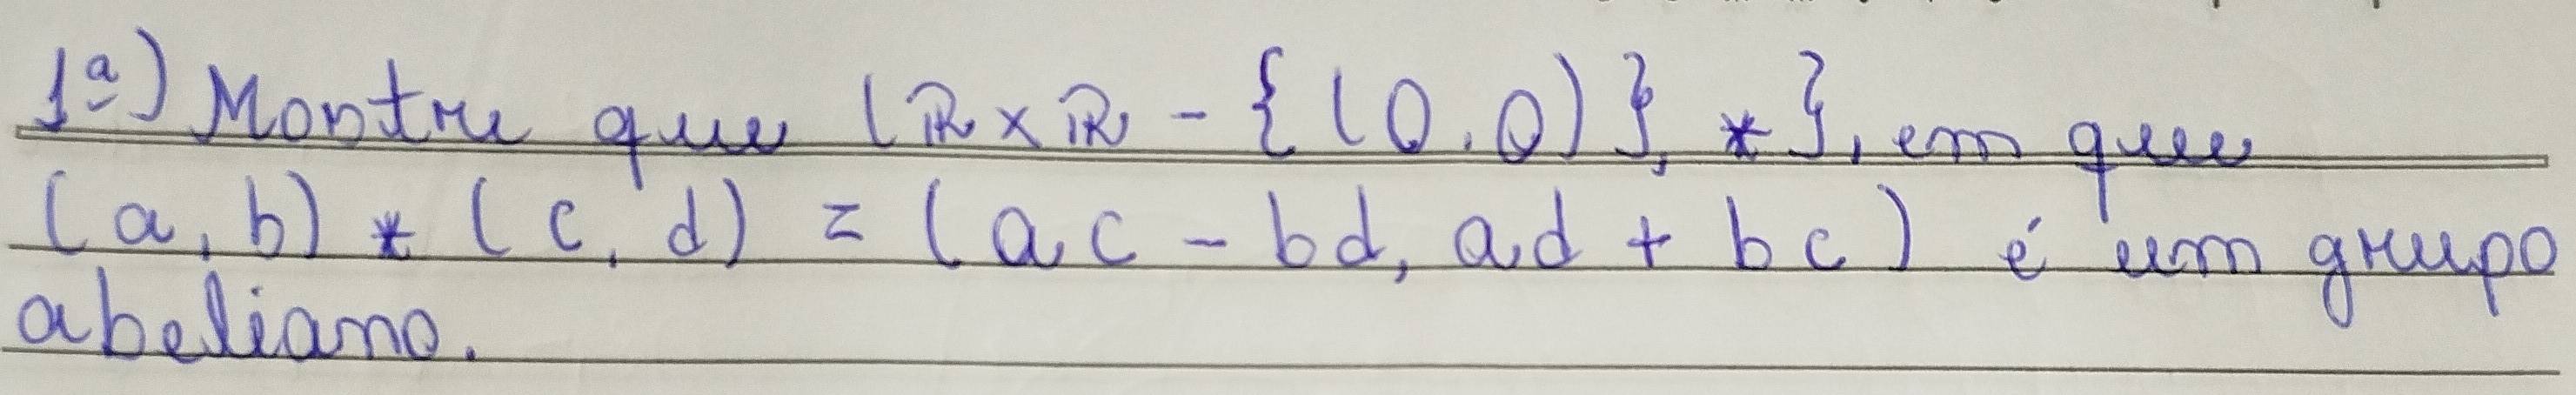 1ª) Mostre que (ℝ×ℝ - {(0,0)}, *}, em que
(a, b) * (c, d) = (ac - bd, ad + bc) é um grupo
abeliano.